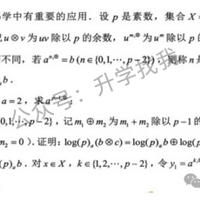 学中有重要的应用．设 p 是素数，集合 X
u⊗v 为 uv 除以 p 的余数，u^{m,⊗} 为 u^m 除以 p 的
不同，若 a^{n,⊗}=b(n∈{0,1,⋯,p−2})，则称 n 是
b．
a=2，求 a
0,1,⋯,p−2}，记 m₁⊕m₂ 为 m₁+m₂ 除以 p−1 的
m₂=0)．证明：log(p)ₐ(b⊗c)=log(p)ₐb⊕log(p)
(p)ₐb．对 x∈X，k∈{1,2,⋯,p−2}，令 y₁=a^{k,⊗}
公众号：升学找我